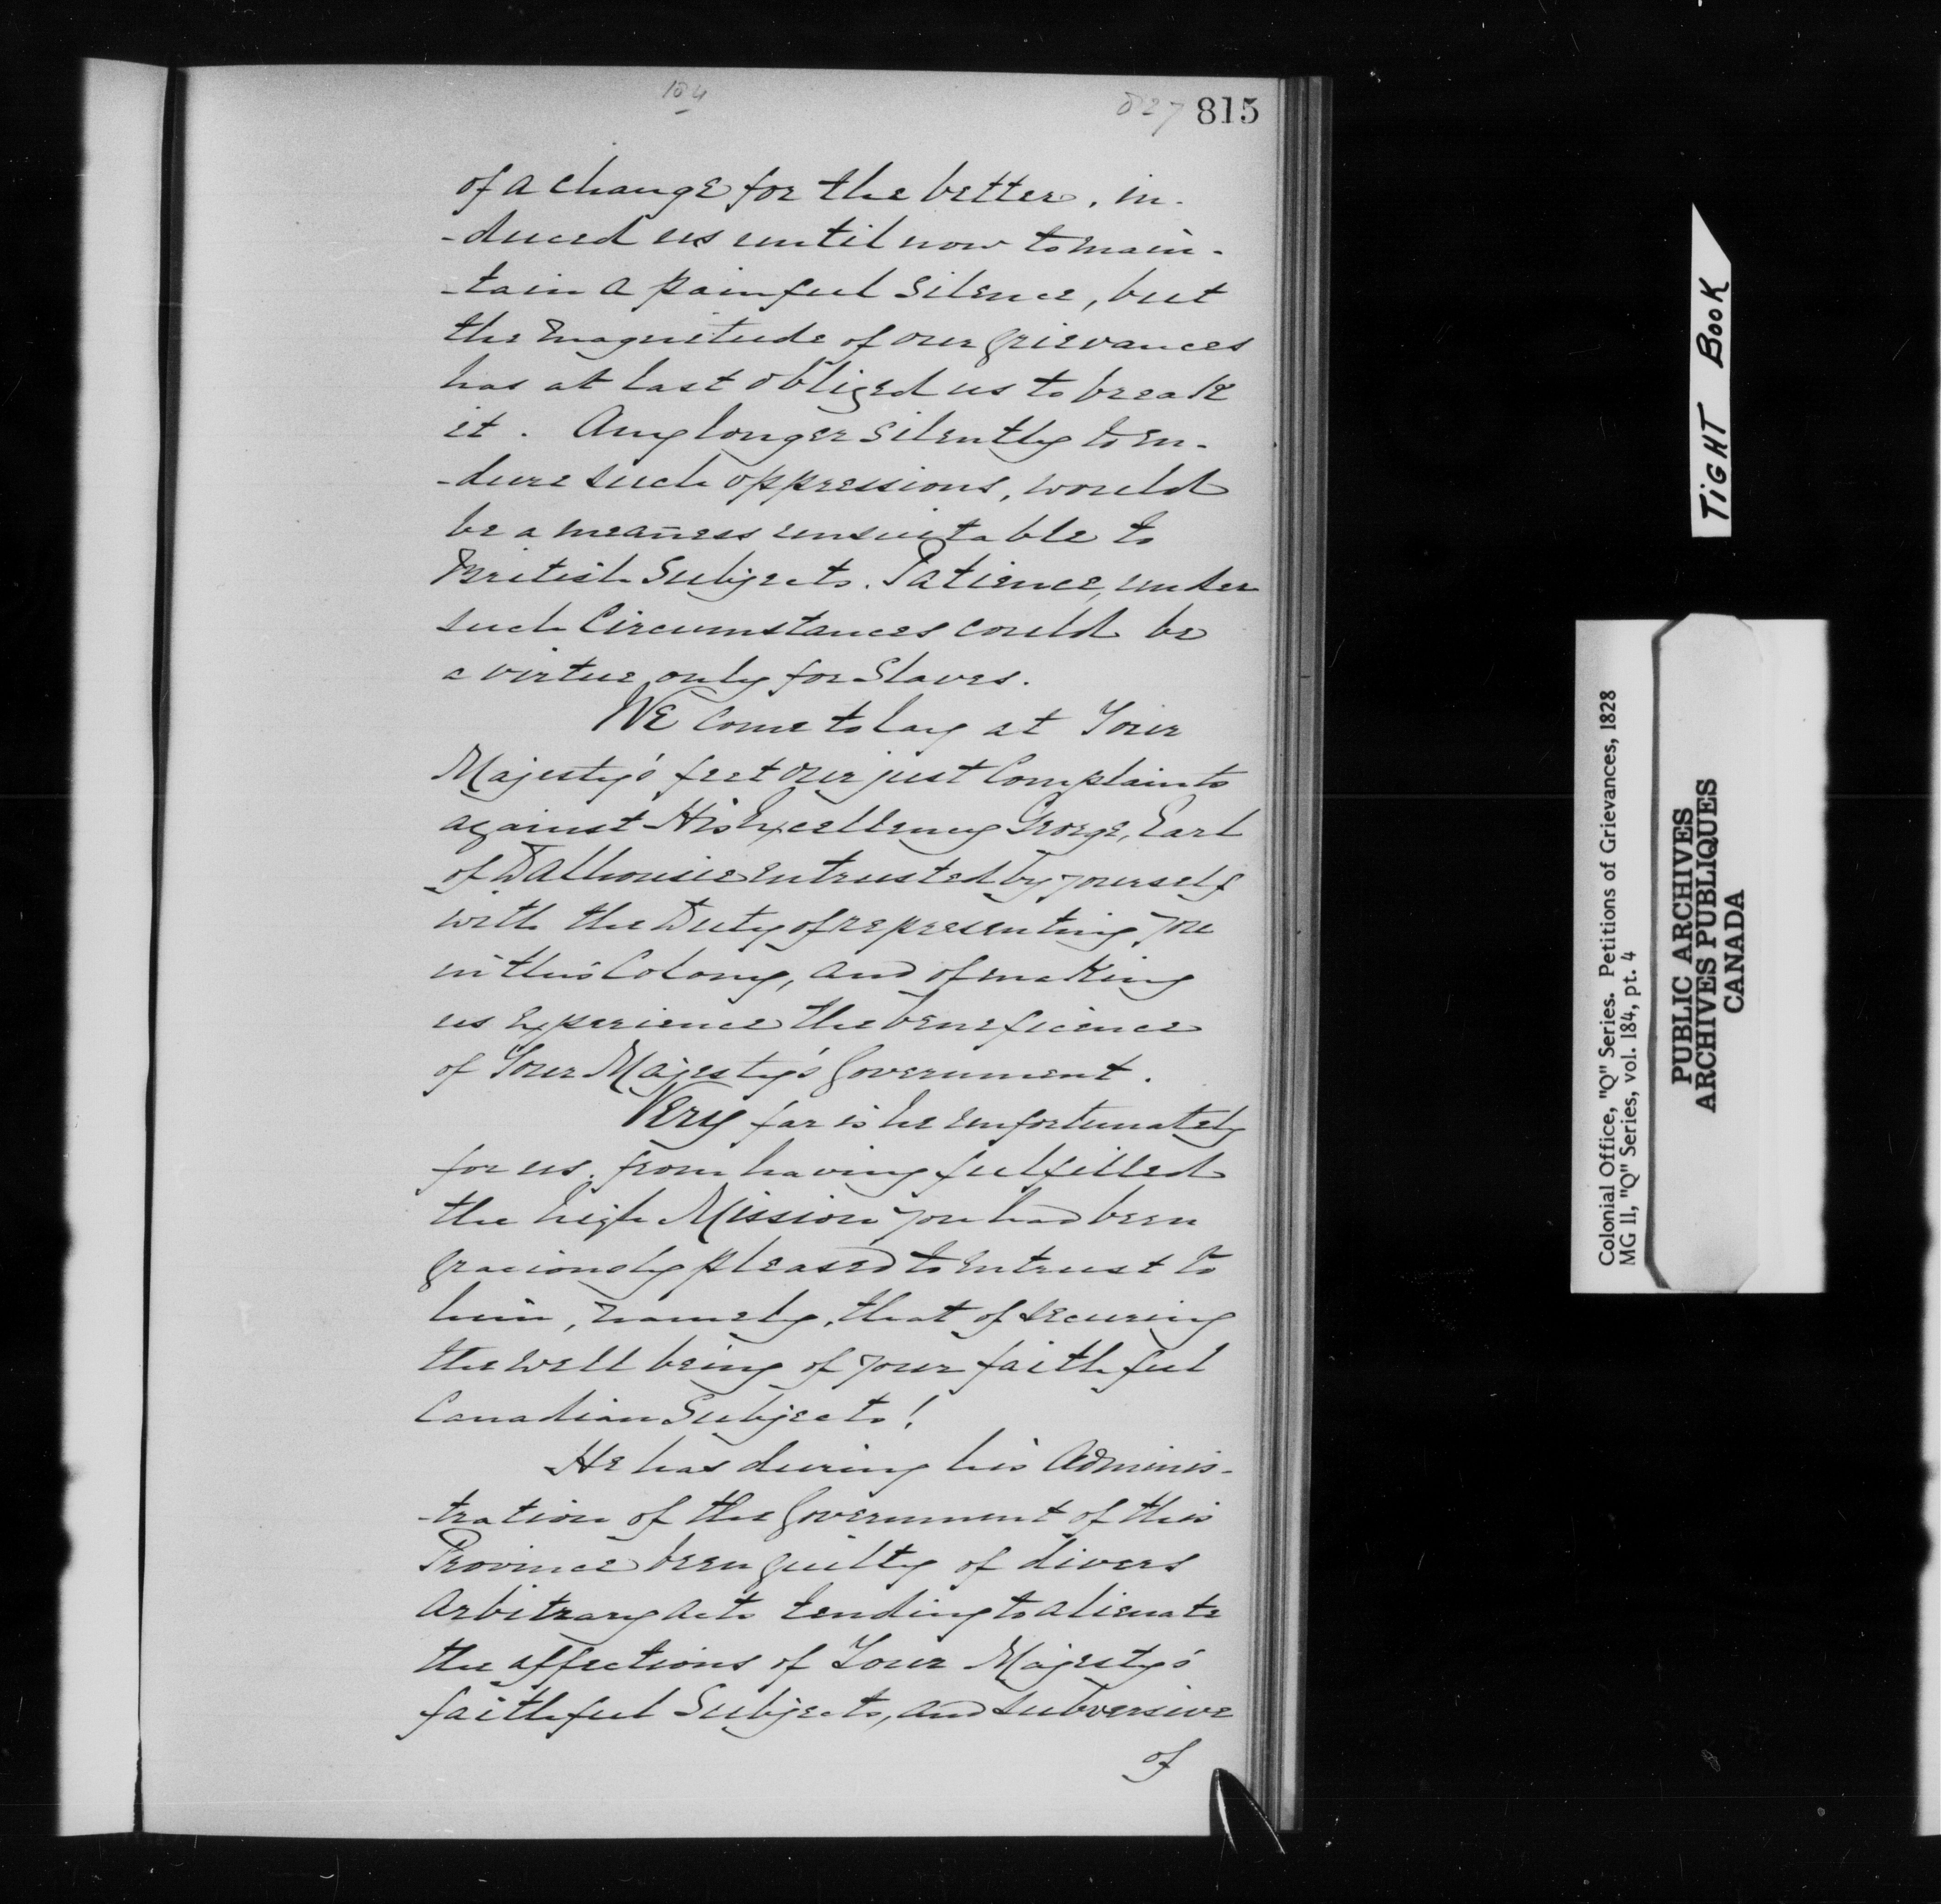 184
827 815
of a change for the better, in-
-duced us until now to main-
-tain a painful silence, but
the magnitude of our grievances
has at last obliged us to break
it. Any longer silently to en-
-dure such oppressions, would
be a meañess unsuitable to
British Subjects. Patience, under
such Circumstances could be
a virtue only for Slaves.
We come to lay at Your
Majesty's feet our just Complaints
against His Excellency George, Earl
of Dalhousie entrusted by yourself
with the Duty of representing you
in this Colony, and of making
us experience the beneficence
of Your Majesty's Government.
Very far is he unfortunately
for us, from having fulfilled
the high Mission you had been
graciously pleased to entrust to
him, namely, that of securing
the well being of your faithful
Canadian Subjects!
He has during his Adminis-
-tration of the Government of this
Province been guilty of divers
Arbitrary Acts tending to alienate
the affections of Your Majesty's
faithful Subjects, and subversive
of
TIGHT BOOK
Colonial Office, "Q" Series. Petitions of Grievances, 1828
MG 11, "Q" Series, vol. 184, pt. 4
PUBLIC ARCHIVES
ARCHIVES PUBLIQUES
CANADA